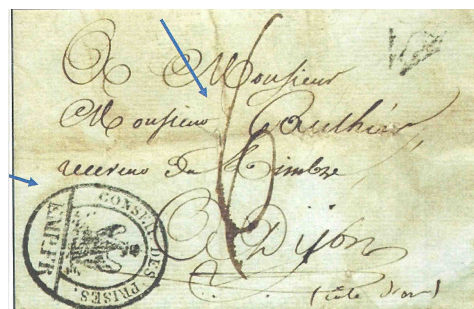 A Monsieur
Monsieur Gauthier
receveur du Timbre
6
A Dijon
(côte d'or)
CONSEIL DES PRISES.
EMP. FR.